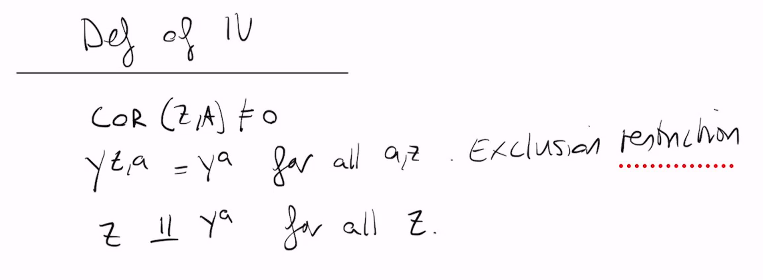 Def of IV
COR (Z,A) ≠ 0
Y^{z,a} = Y^a for all a,z. Exclusion restriction
Z ⫫ Y^a for all z.